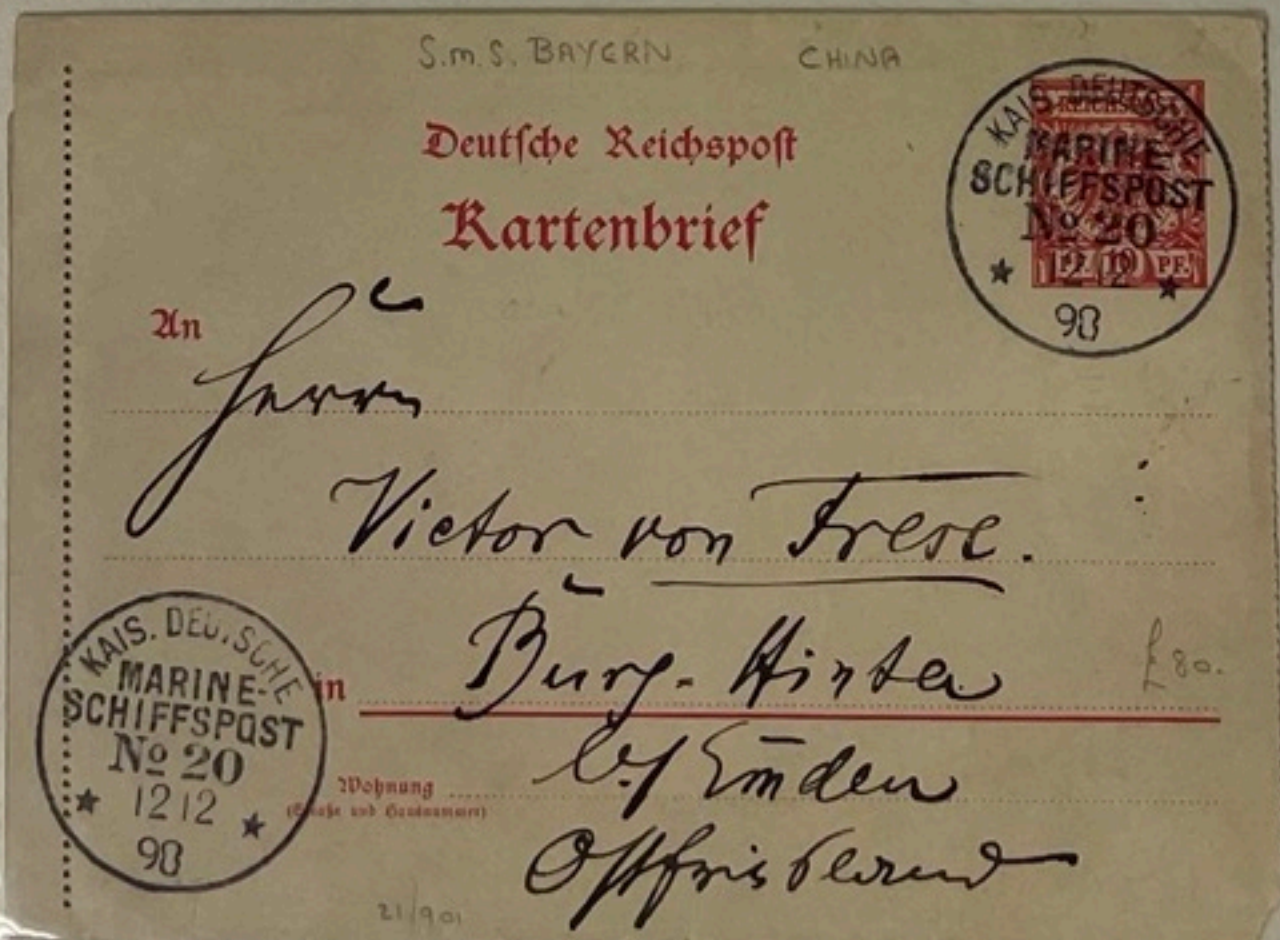 S.M.S. BAYERN CHINA
Deutsche Reichspost
Kartenbrief
KAIS. DEUTSCHE
MARINE-
SCHIFFSPOST
No 20
12 12
90
REICHSPOST
PF. 10 PF.
An
Herrn
Victor von Frese.
in Burg-Hinta
b/ Emden
Ostfriesland
Wohnung
(Straße und Hausnummer)
£80.
KAIS. DEUTSCHE
MARINE-
SCHIFFSPOST
No 20
12 12
90
21/901